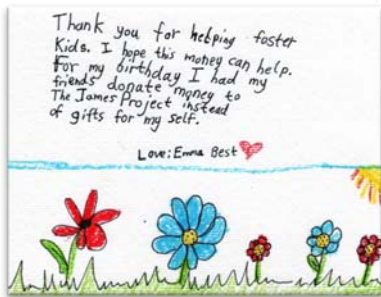 Thank you for helping foster
Kids. I hope this money can help.
For my birthday I had my
friends donate money to
The James Project instead
of gifts for my self.
Love: Emma Best